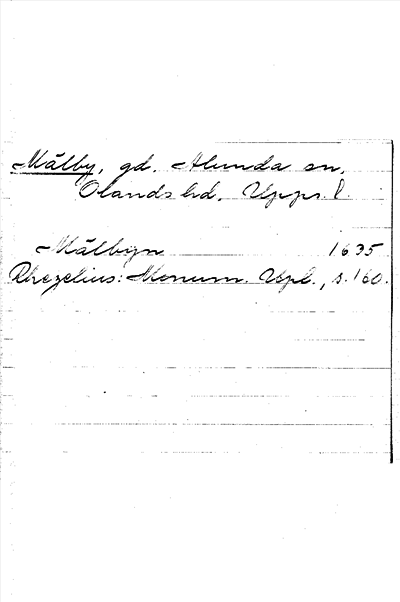 Målby, gd. Alunda sn,
Olands hd. Upps. l.
Målbyn 1635
Rhezelius: Monum. Upl., s. 160.